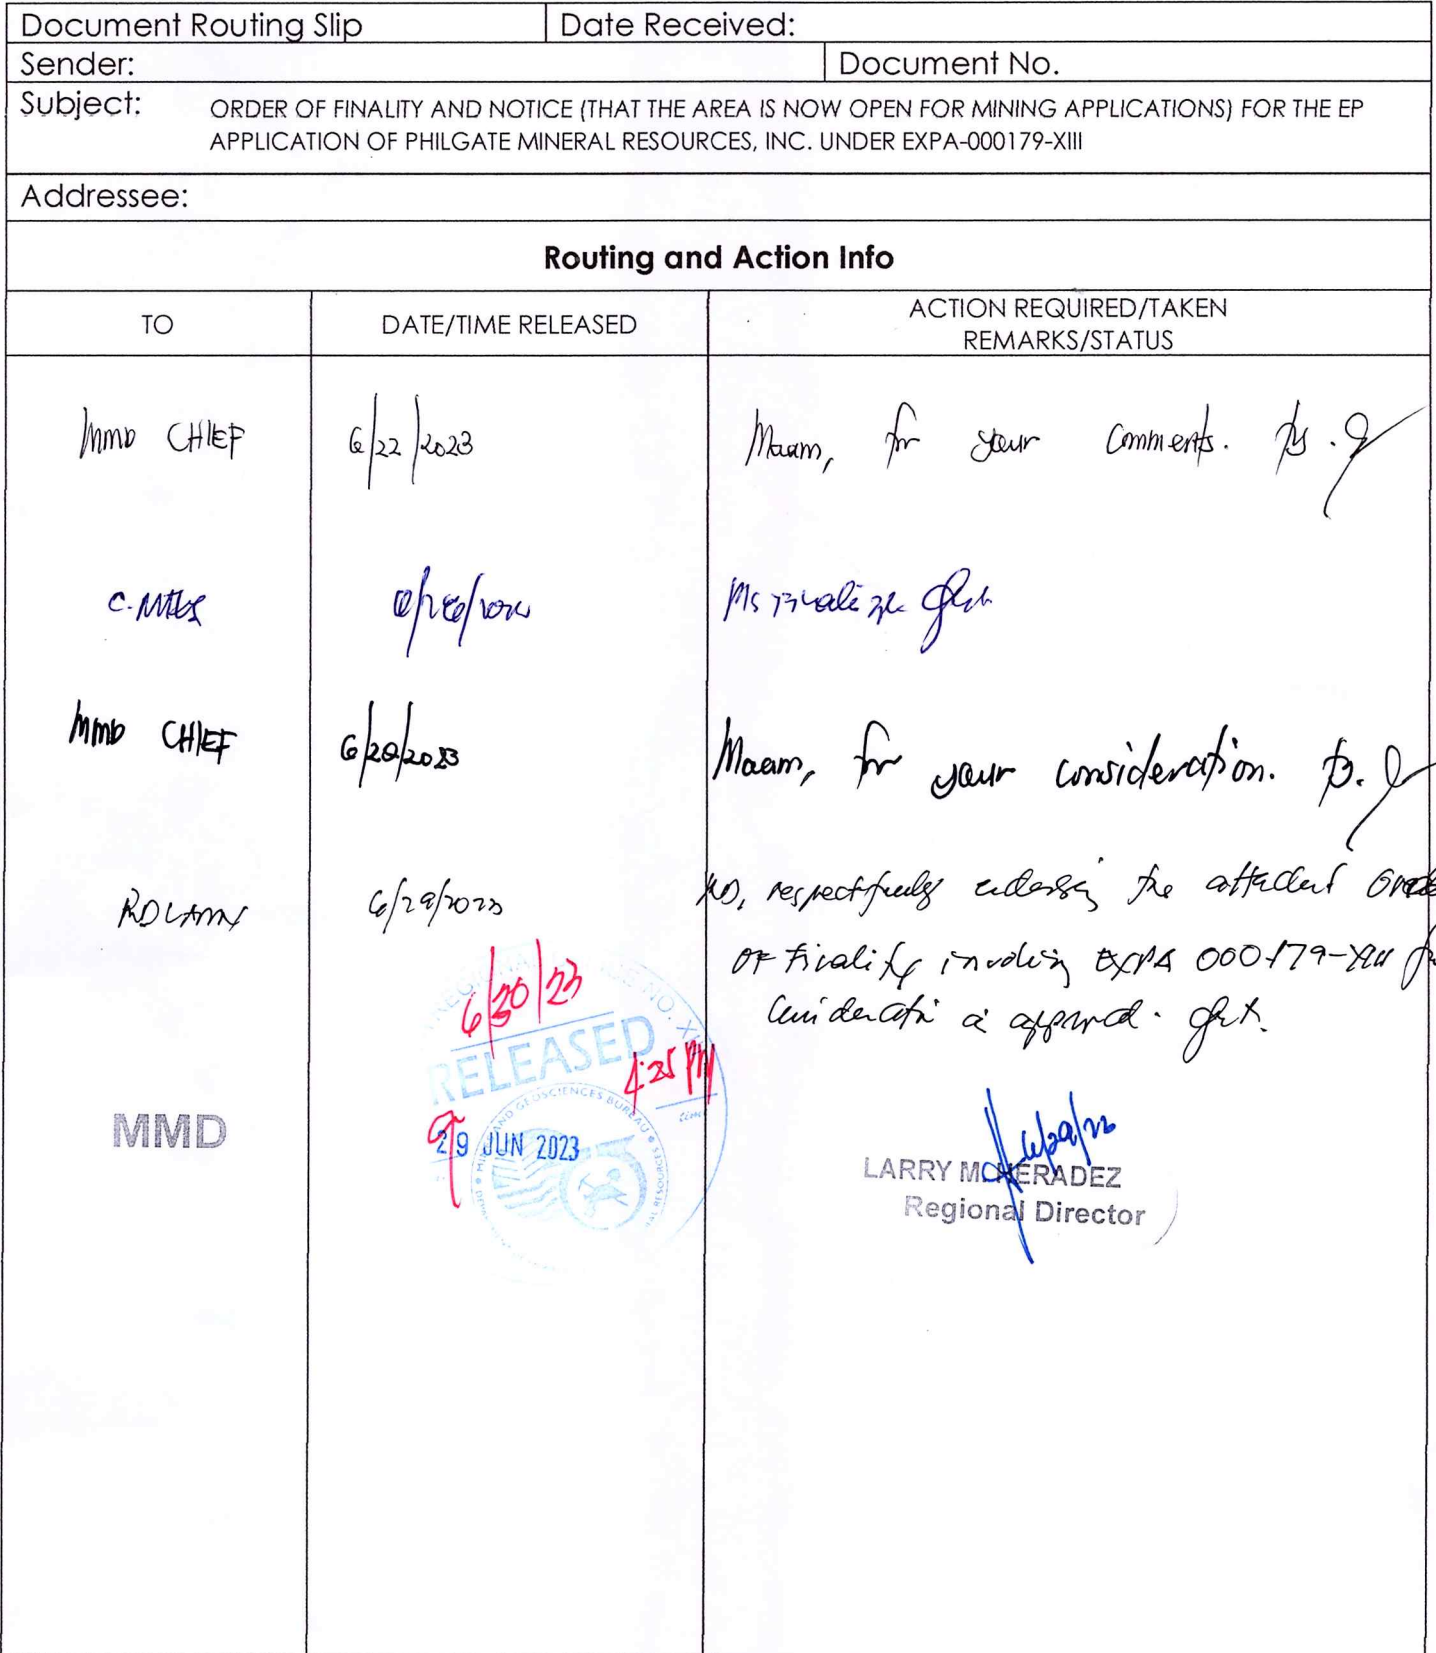 Document Routing Slip Date Received:
Sender: Document No.
Subject: ORDER OF FINALITY AND NOTICE (THAT THE AREA IS NOW OPEN FOR MINING APPLICATIONS) FOR THE EP
APPLICATION OF PHILGATE MINERAL RESOURCES, INC. UNDER EXPA-000179-XIII
Addressee:
Routing and Action Info
TO DATE/TIME RELEASED ACTION REQUIRED/TAKEN
REMARKS/STATUS
MMD CHIEF 6/22/2023 Maam, for your comments.
Pls finalize
MMD CHIEF Maam, for your consideration.
6/29/2023 RD, respectfully endorsing the attached Order
OF Finality involving EXPA 000179-XIII for
consideration & approval.
6/30/23
RELEASED
4:25 PM
MINES AND GEOSCIENCES BUREAU
MMD 29 JUN 2023
6/29/23
LARRY M. HERADEZ
Regional Director